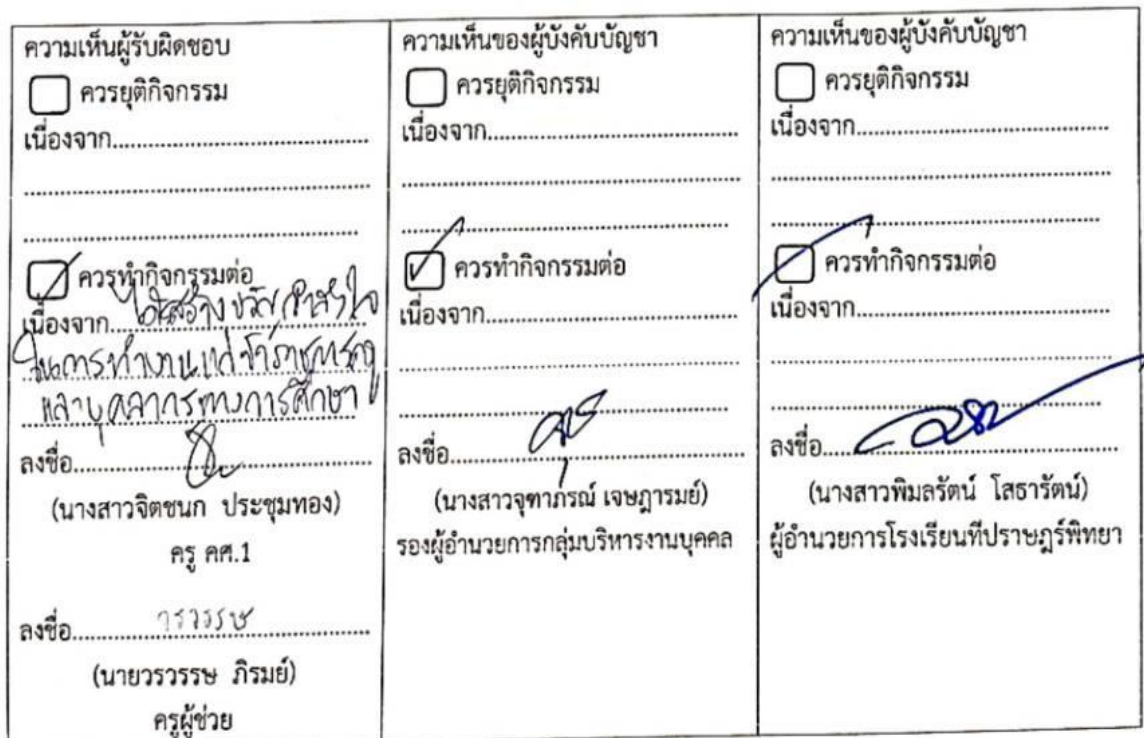 ความเห็นผู้รับผิดชอบ
ควรยุติกิจกรรม
เนื่องจาก
ควรทำกิจกรรมต่อ
เนื่องจาก ได้สร้างขวัญกำลังใจ
ในการทำงานแก่ข้าราชการครู
และบุคลากรทางการศึกษา
ลงชื่อ
(นางสาวจิตชนก ประชุมทอง)
ครู คศ.1
ลงชื่อ วรวรรษ
(นายวรวรรษ ภิรมย์)
ครูผู้ช่วย
ความเห็นของผู้บังคับบัญชา
ควรยุติกิจกรรม
เนื่องจาก
ควรทำกิจกรรมต่อ
เนื่องจาก
ลงชื่อ
(นางสาวจุฑาภรณ์ เจษฎารมย์)
รองผู้อำนวยการกลุ่มบริหารงานบุคคล
ความเห็นของผู้บังคับบัญชา
ควรยุติกิจกรรม
เนื่องจาก
ควรทำกิจกรรมต่อ
เนื่องจาก
ลงชื่อ
(นางสาวพิมลรัตน์ โสธารัตน์)
ผู้อำนวยการโรงเรียนทีปราษฎร์พิทยา